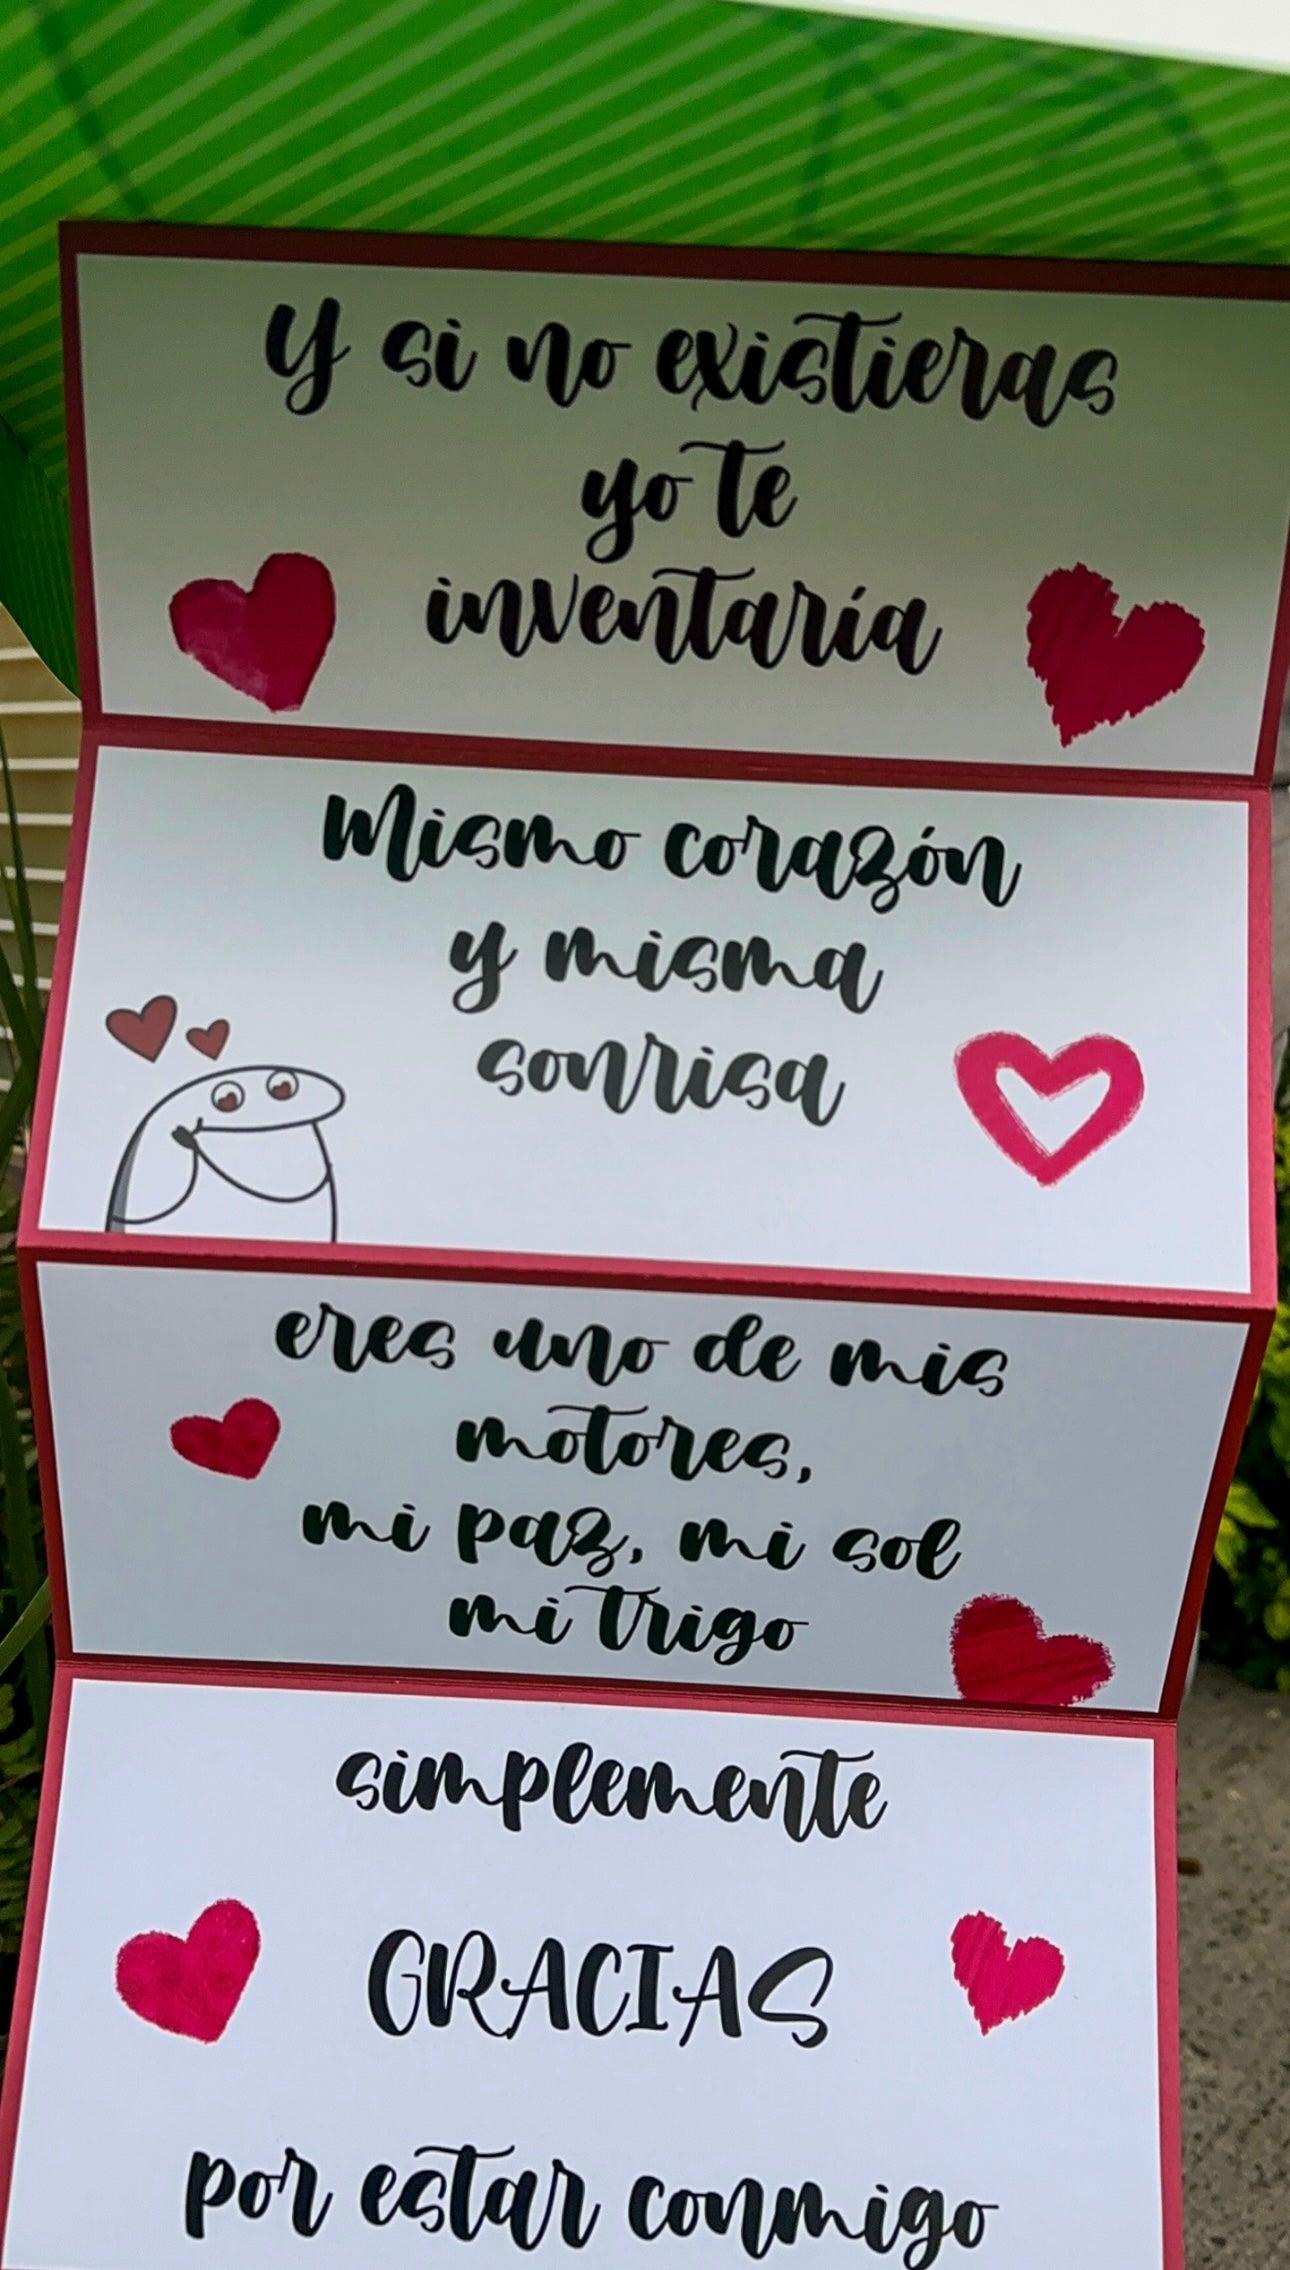 Y si no existieras
yo te
inventaría
Mismo corazón
y misma
sonrisa
eres uno de mis
motores,
mi paz, mi sol
mi trigo
simplemente
GRACIAS
por estar conmigo